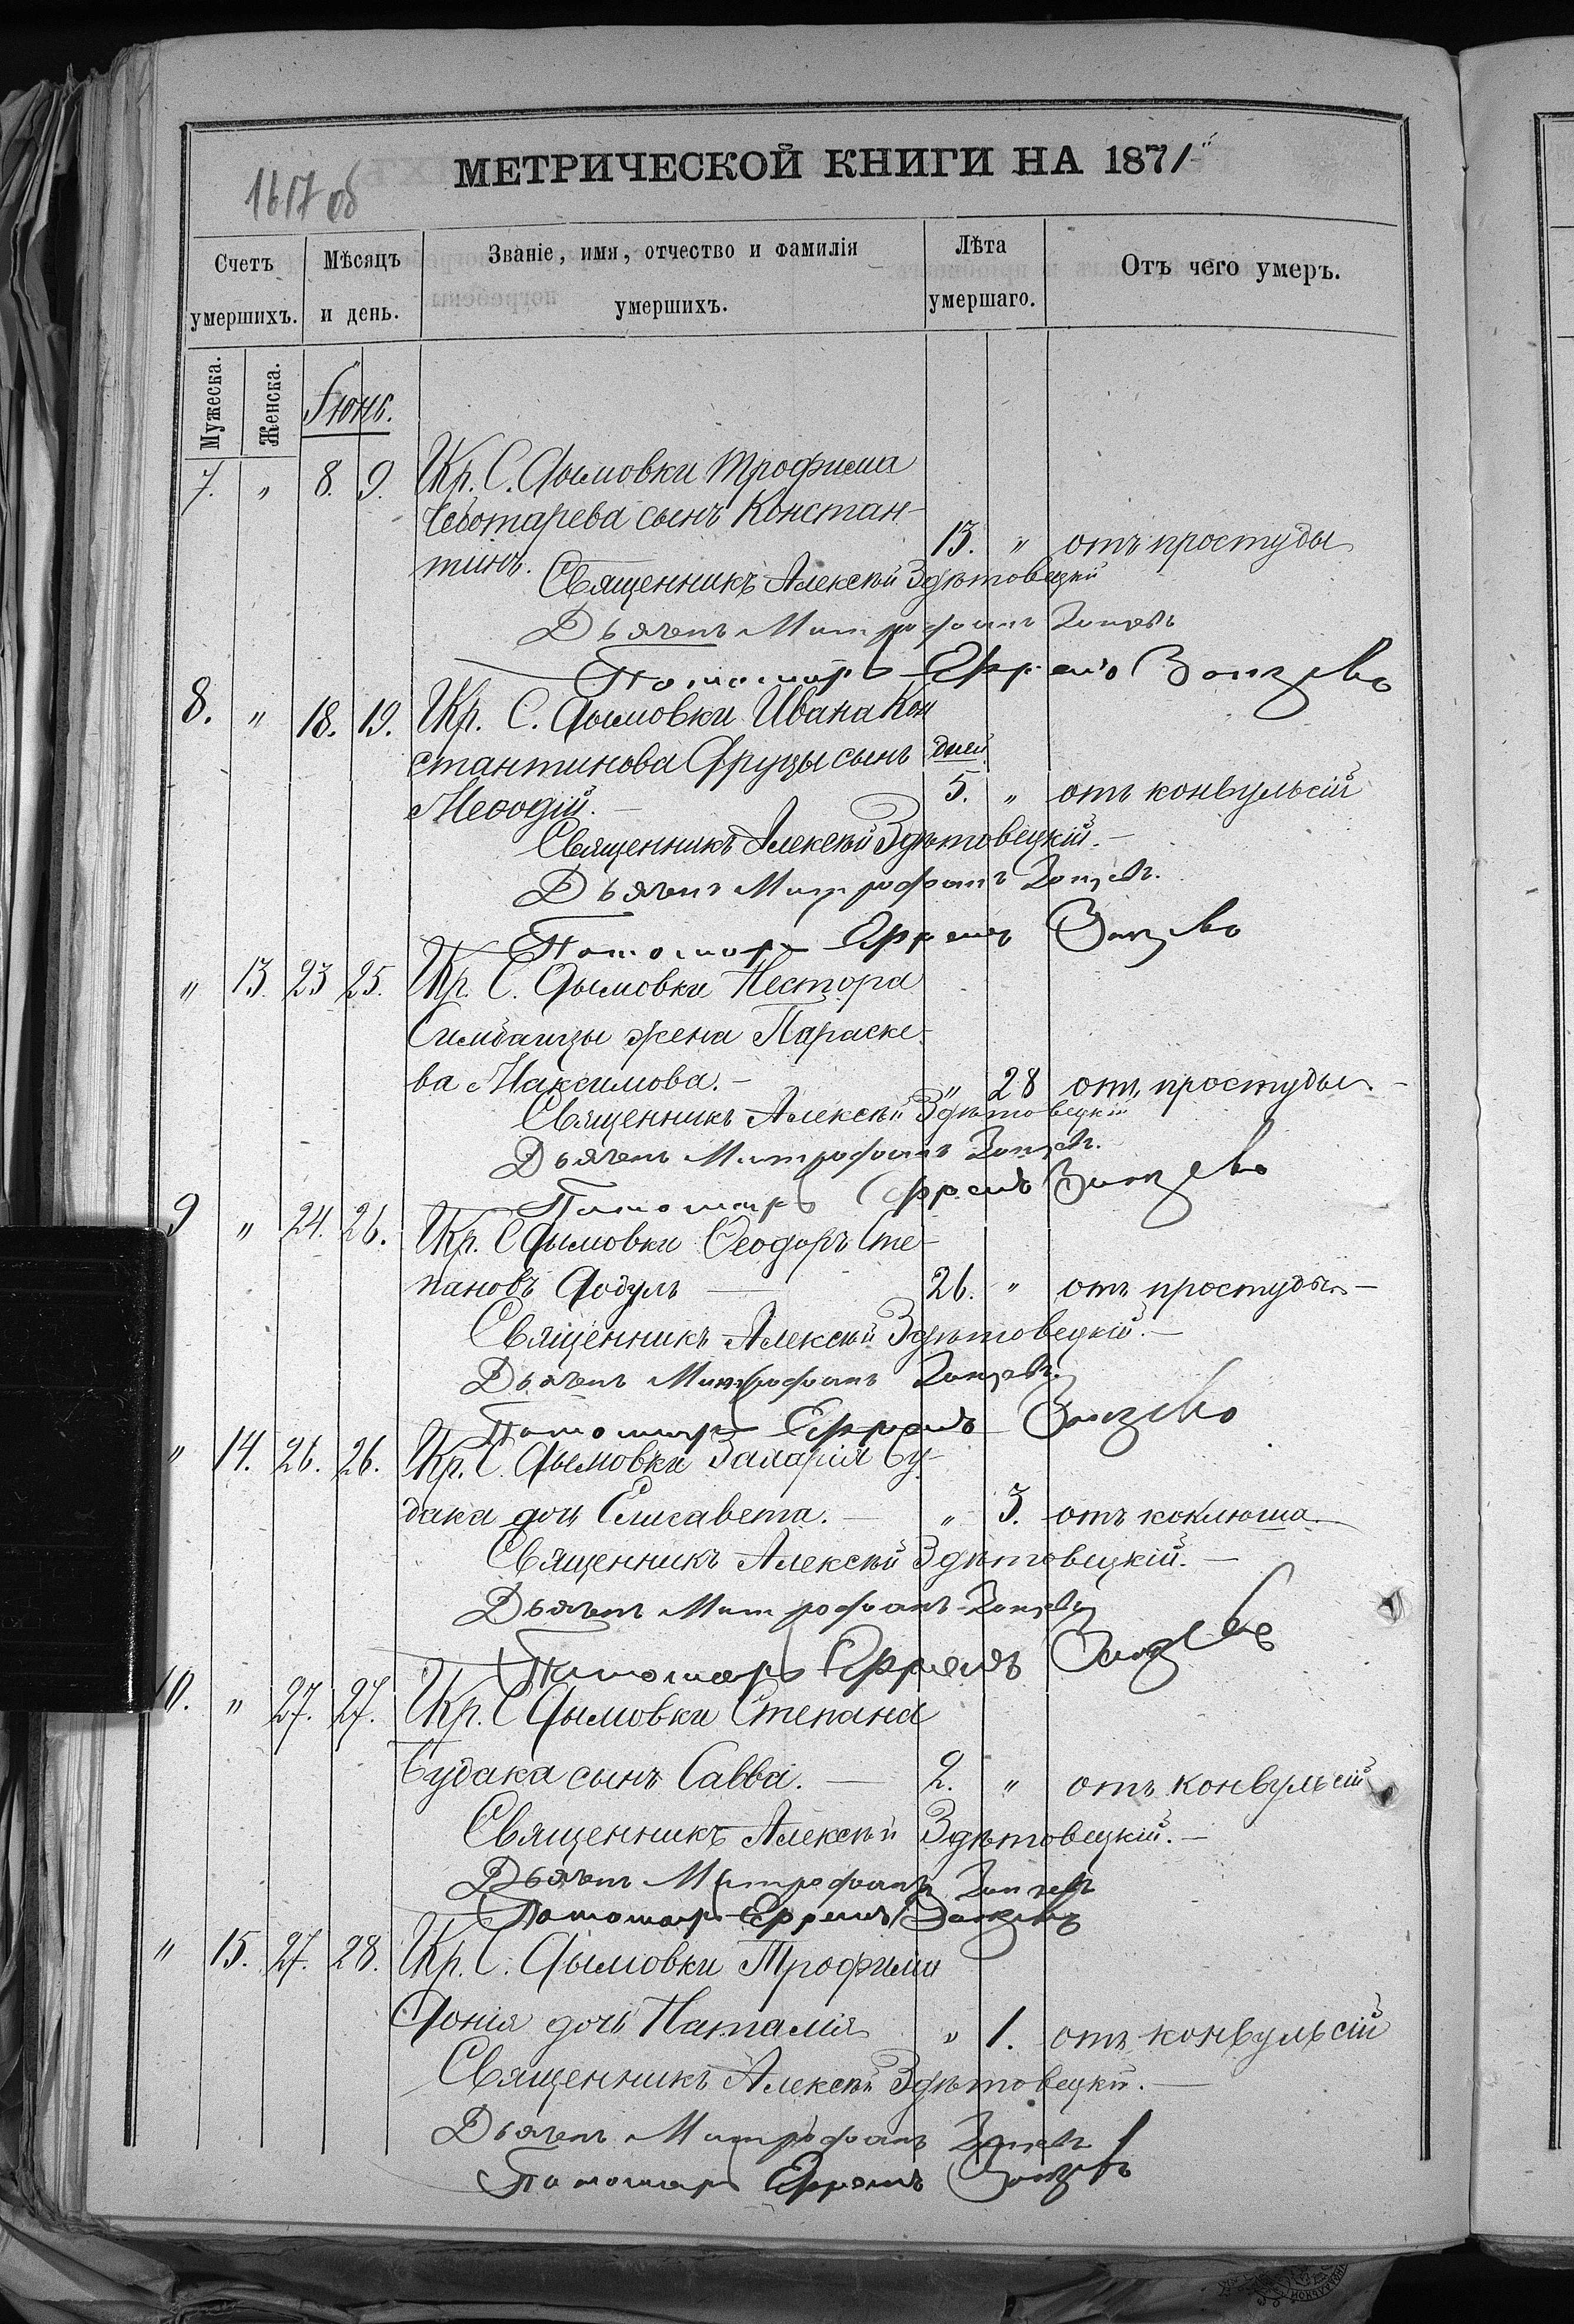 МЕТРИЧЕСКОЙ КНИГИ НА 1871
1617 об
Счетъ умершихъ.
Мѣсяцъ и день.
Званіе, имя, отчество и фамилія умершихъ.
Лѣта умершаго.
Отъ чего умеръ.
Мужеска. Женска. Іюнь.
7. " 8. 9. Кр. С. Дымовки Трофима
Чеботарева сынъ Констан-
тинъ. 13. " отъ простуды
Священникъ Алексѣй Здѣтовецкій
Дьячекъ Митрофанъ
Пономарь Ефремъ
8. " 18. 19. Кр. С. Дымовки Ивана Кон
стантинова Фруцы сынъ дней
Меѳодій. — 5. " отъ конвульсій
Священникъ Алексѣй Здѣтовецкій. —
Дьячекъ Митрофанъ
Пономарь Ефремъ
" 13. 23 25. Кр. С. Дымовки Нестора
жена Параске-
ва Максимова. — " 28 отъ простуды —
Священникъ Алексѣй Здѣтовецкій
Дьячекъ Митрофанъ
Пономарь Ефремъ
9 " 24. 26. Кр. С Дымовки Ѳеодоръ Сте-
пановъ Додулъ — 26. " отъ простуды —
Священникъ Алексѣй Здѣтовецкій. —
Дьячекъ Митрофанъ
Пономарь Ефремъ
" 14. 26. 26. Кр. С. Дымовки Захарія Бу-
дака дочь Елисавета. — " 3. отъ коклюша
Священникъ Алексѣй Здѣтовецкій. —
Дьячекъ Митрофанъ
Пономарь Ефремъ
10. " 27. 27. Кр. С Дымовки Степана
Будака сынъ Савва. — 2. " отъ конвульсій
Священникъ Алексѣй Здѣтовецкій. —
Дьячекъ Митрофанъ
Пономарь Ефремъ
" 15. 27. 28. Кр. С. Дымовки Трофима
Донія дочь Наталія " 1. отъ конвульсій
Священникъ Алексѣй Здѣтовецкій. —
Дьячекъ Митрофанъ
Пономарь Ефремъ